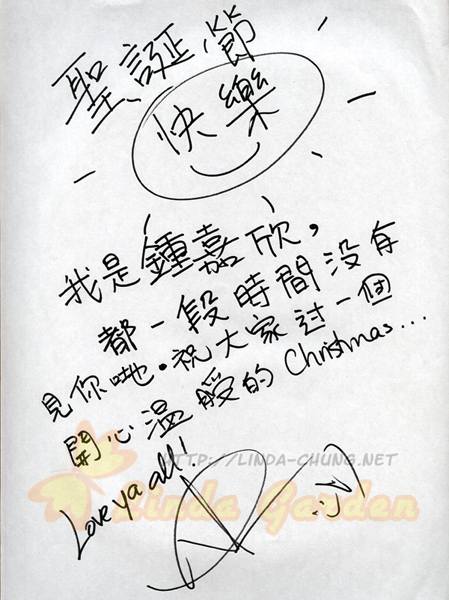 聖誕節
快樂
我是鍾嘉欣，
都一段時間没有
見你哋．祝大家过一個
開心温暖的 Christmas...
Love ya all!
HTTP://LINDA-CHUNG.NET
Linda Garden